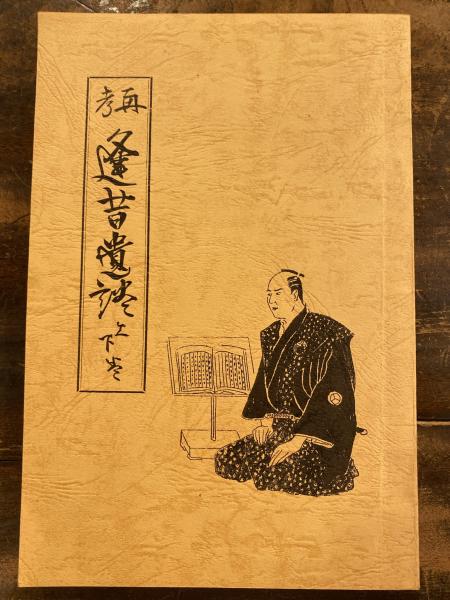 再考
逢昔遺談 上下巻